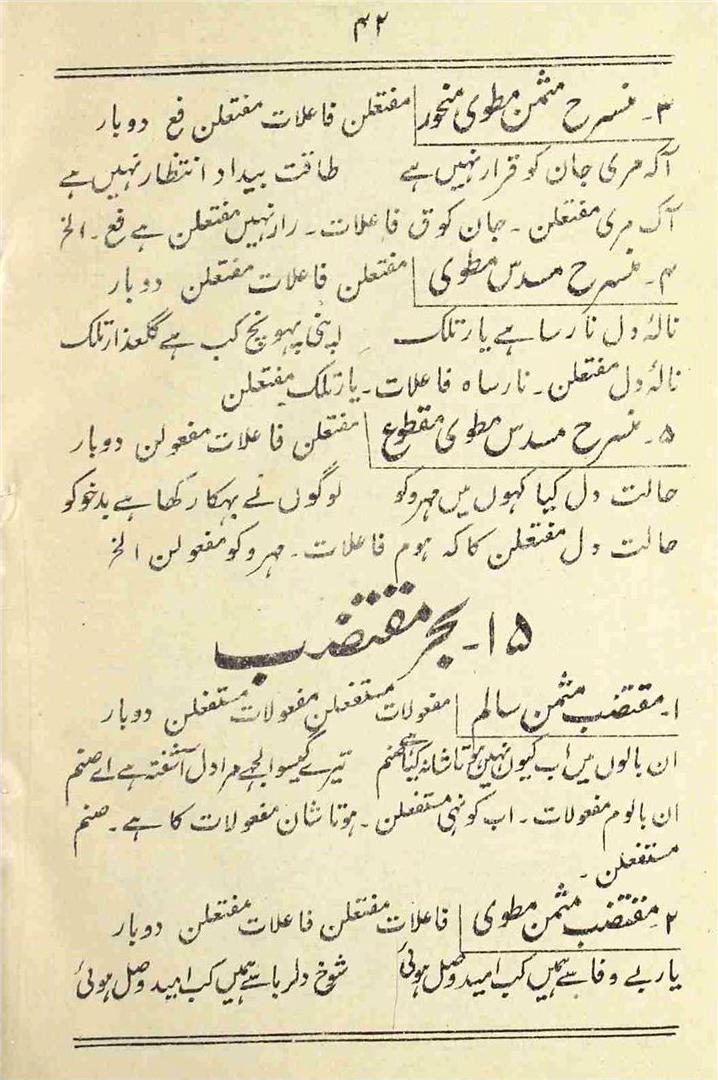 ۴۲
۳۔ منسرح مثمن مطوی منحور مفتعلن فاعلات مفتعلن فع دوبار
آکہ مری جان کو قرار نہیں ہے طاقت بیداد انتظار نہیں ہے
آک مری مفتعلن ۔ جان کوق فاعلات ۔ رار نہیں مفتعلن ہے فع ۔ الخ
۴۔ منسرح مسدس مطوی مفتعلن فاعلات مفتعلن دوبار
نالۂ دل نارسا ہے یار تلک پہونچ کب ہے گلعذار تلک
نالۂ دل مفتعلن ۔ نارساہ فاعلات ۔ یار تلک مفتعلن
۵۔ منسرح مسدس مطوی مقطوع مفتعلن فاعلات مفعولن دوبار
حالت دل کیا کہوں میں مہرو کو لوگوں نے بہکا رکھا ہے بدخو کو
حالت دل مفتعلن کا کہ ہوم فاعلات ۔ مہرو کو مفعولن الخ
۱۵۔ بحر مقتضب
۱۔ مقتضب مثمن سالم مفعولات مستفعلن مفعولات مستفعلن دوبار
ان بالوں میں اب کیوں نہیں ہوتا شانہ کیا ہے صنم تیرے گیسو الجھے مرا دل آشفتہ ہے اے صنم
ان بالوم مفعولات ۔ اب کو نہی مستفعلن ۔ ہوتا شان مفعولات کا ہے ۔ صنم
مستفعلن ۔
۲۔ مقتضب مثمن مطوی فاعلات مفتعلن فاعلات مفتعلن دوبار
یار بے وفا سے ہمیں کب امید وصل ہوئی شوخ دلربا سے ہمیں کب امید وصل ہوئی